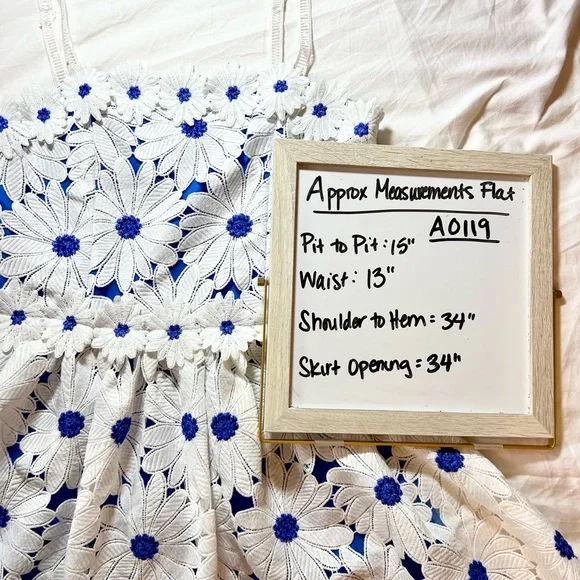 Approx Measurements Flat
A0119
Pit to Pit: 15"
Waist: 13"
Shoulder to Hem = 34"
Skirt Opening = 34"